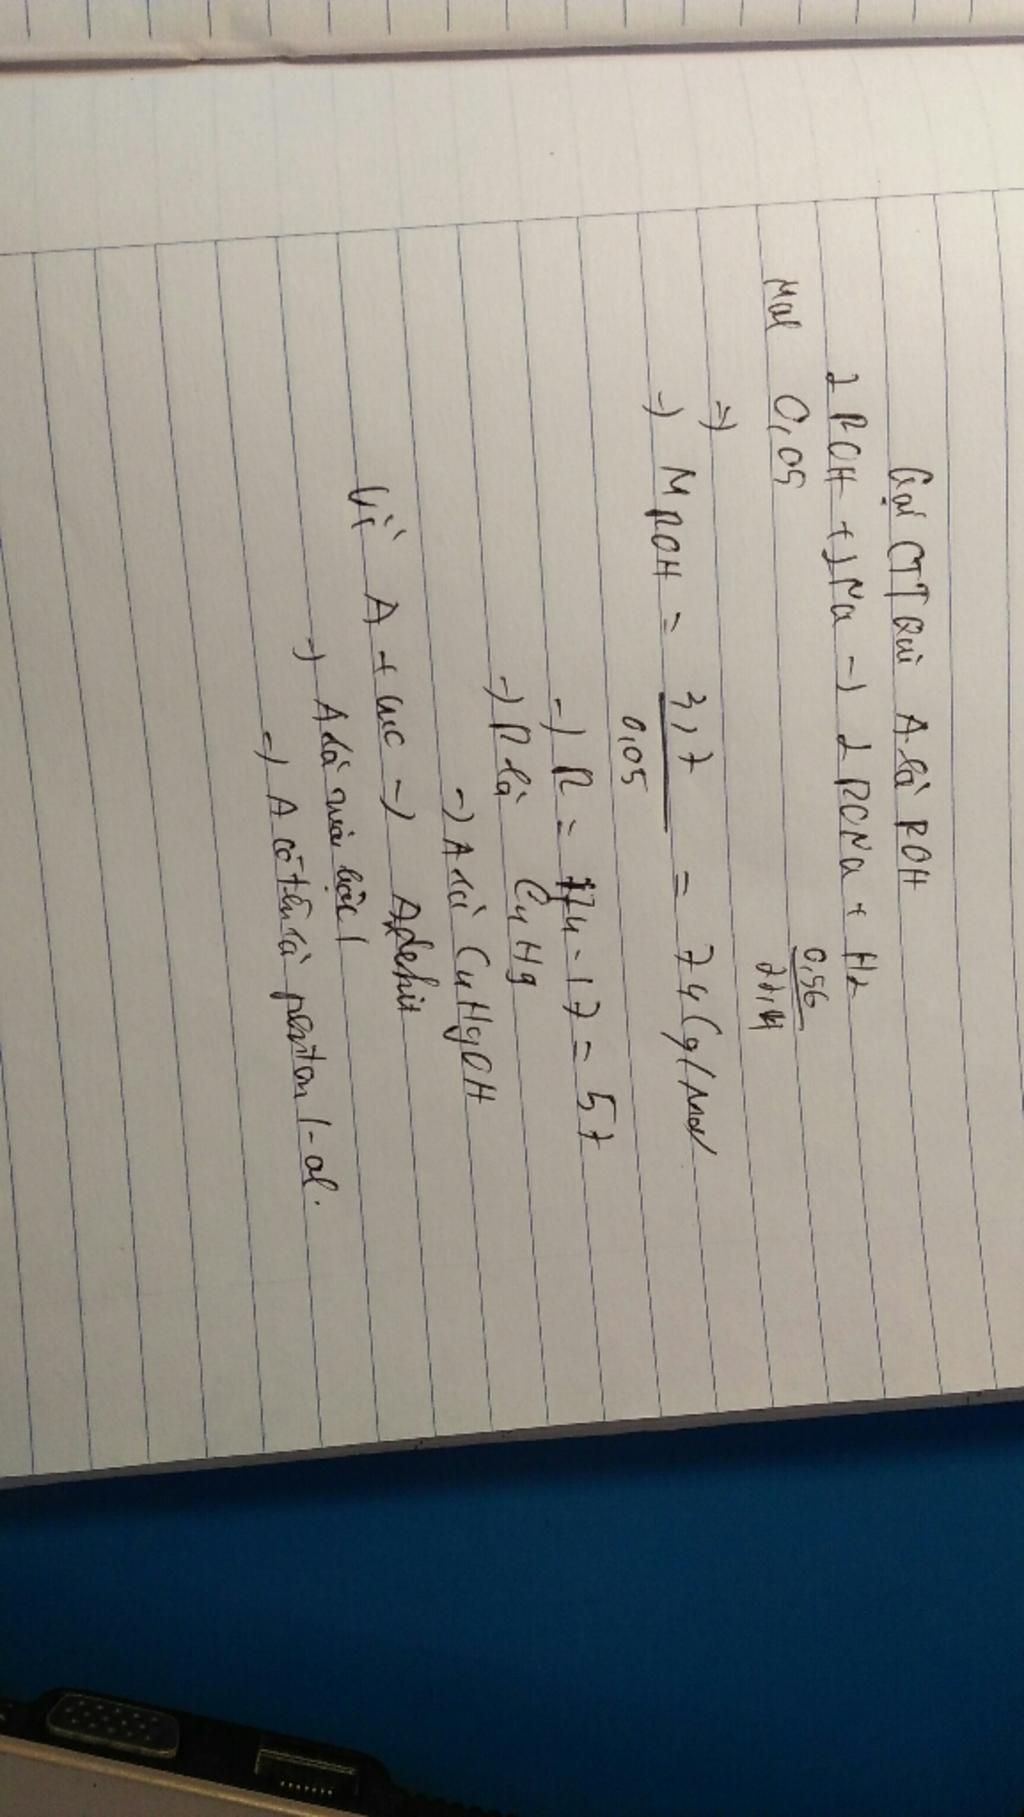 Gọi CTTQ của A là ROH
2 ROH + 2Na -> 2 RONa + H2
Mol 0,05 0,56/22,4
=>
-> M ROH = 3,7/0,05 = 74 (g/mol)
-> R = 74 - 17 = 57
-> R là C4H9
-> A là C4H9OH
Vì A + CuO -> Adehit
-> A là rượu bậc 1
-> A có thể là 1-ol.